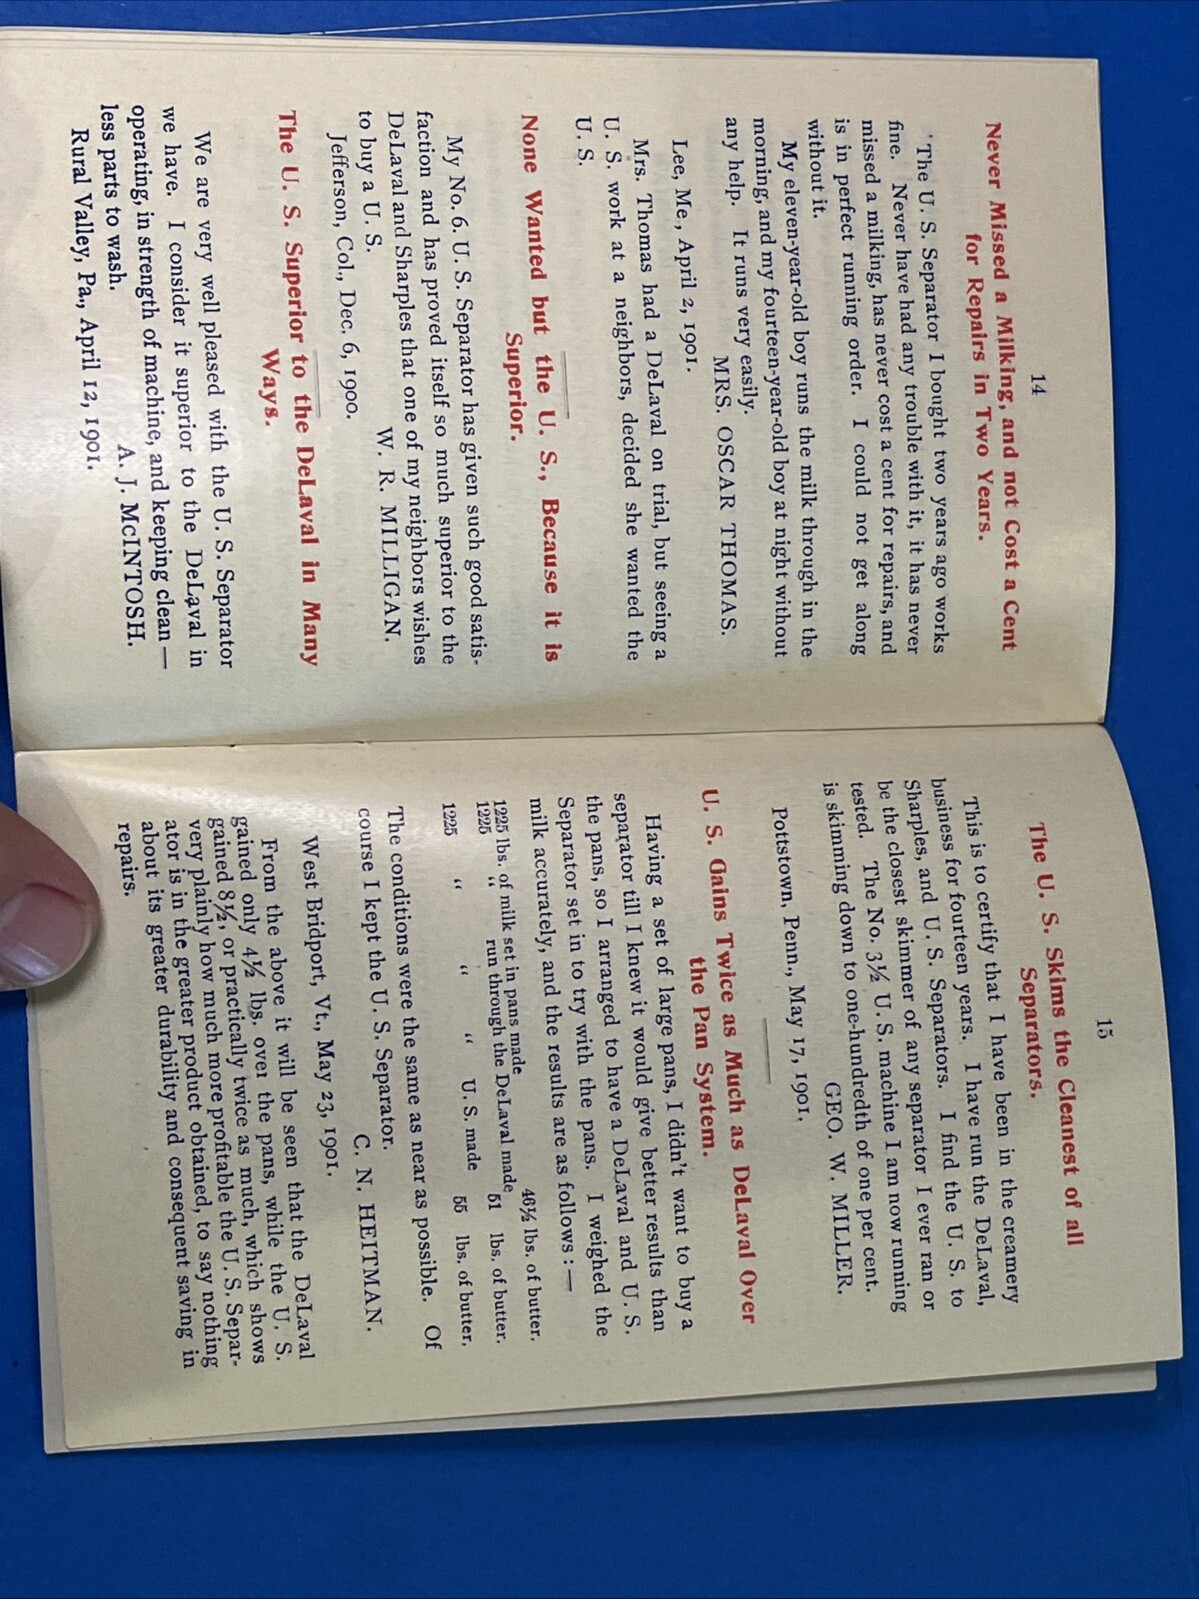 14
Never Missed a Milking, and not Cost a Cent
for Repairs in Two Years.
'The U. S. Separator I bought two years ago works
fine. Never have had any trouble with it, it has never
missed a milking, has never cost a cent for repairs, and
is in perfect running order. I could not get along
without it.
My eleven-year-old boy runs the milk through in the
morning, and my fourteen-year-old boy at night without
any help. It runs very easily.
MRS. OSCAR THOMAS.
Lee, Me., April 2, 1901.
Mrs. Thomas had a DeLaval on trial, but seeing a
U. S. work at a neighbors, decided she wanted the
U. S.
None Wanted but the U. S., Because it is
Superior.
My No. 6. U. S. Separator has given such good satis-
faction and has proved itself so much superior to the
DeLaval and Sharples that one of my neighbors wishes
to buy a U. S.
W. R. MILLIGAN.
Jefferson, Col., Dec. 6, 1900.
The U. S. Superior to the DeLaval in Many
Ways.
We are very well pleased with the U. S. Separator
we have. I consider it superior to the DeLaval in
operating, in strength of machine, and keeping clean —
less parts to wash.
A. J. McINTOSH.
Rural Valley, Pa., April 12, 1901.
15
The U. S. Skims the Cleanest of all
Separators.
This is to certify that I have been in the creamery
business for fourteen years. I have run the DeLaval,
Sharples, and U. S. Separators. I find the U. S. to
be the closest skimmer of any separator I ever ran or
tested. The No. 3½ U. S. machine I am now running
is skimming down to one-hundredth of one per cent.
GEO. W. MILLER.
Pottstown, Penn., May 17, 1901.
U. S. Gains Twice as Much as DeLaval Over
the Pan System.
Having a set of large pans, I didn't want to buy a
separator till I knew it would give better results than
the pans, so I arranged to have a DeLaval and U. S.
Separator set in to try with the pans. I weighed the
milk accurately, and the results are as follows :—
1225 lbs. of milk set in pans made 46½ lbs. of butter.
1225 " run through the DeLaval made 51 lbs. of butter.
1225 " " " U. S. made 55 lbs. of butter.
The conditions were the same as near as possible. Of
course I kept the U. S. Separator.
C. N. HEITMAN.
West Bridport, Vt., May 23, 1901.
From the above it will be seen that the DeLaval
gained only 4½ lbs. over the pans, while the U. S.
gained 8½, or practically twice as much, which shows
very plainly how much more profitable the U. S. Separ-
ator is in the greater product obtained, to say nothing
about its greater durability and consequent saving in
repairs.